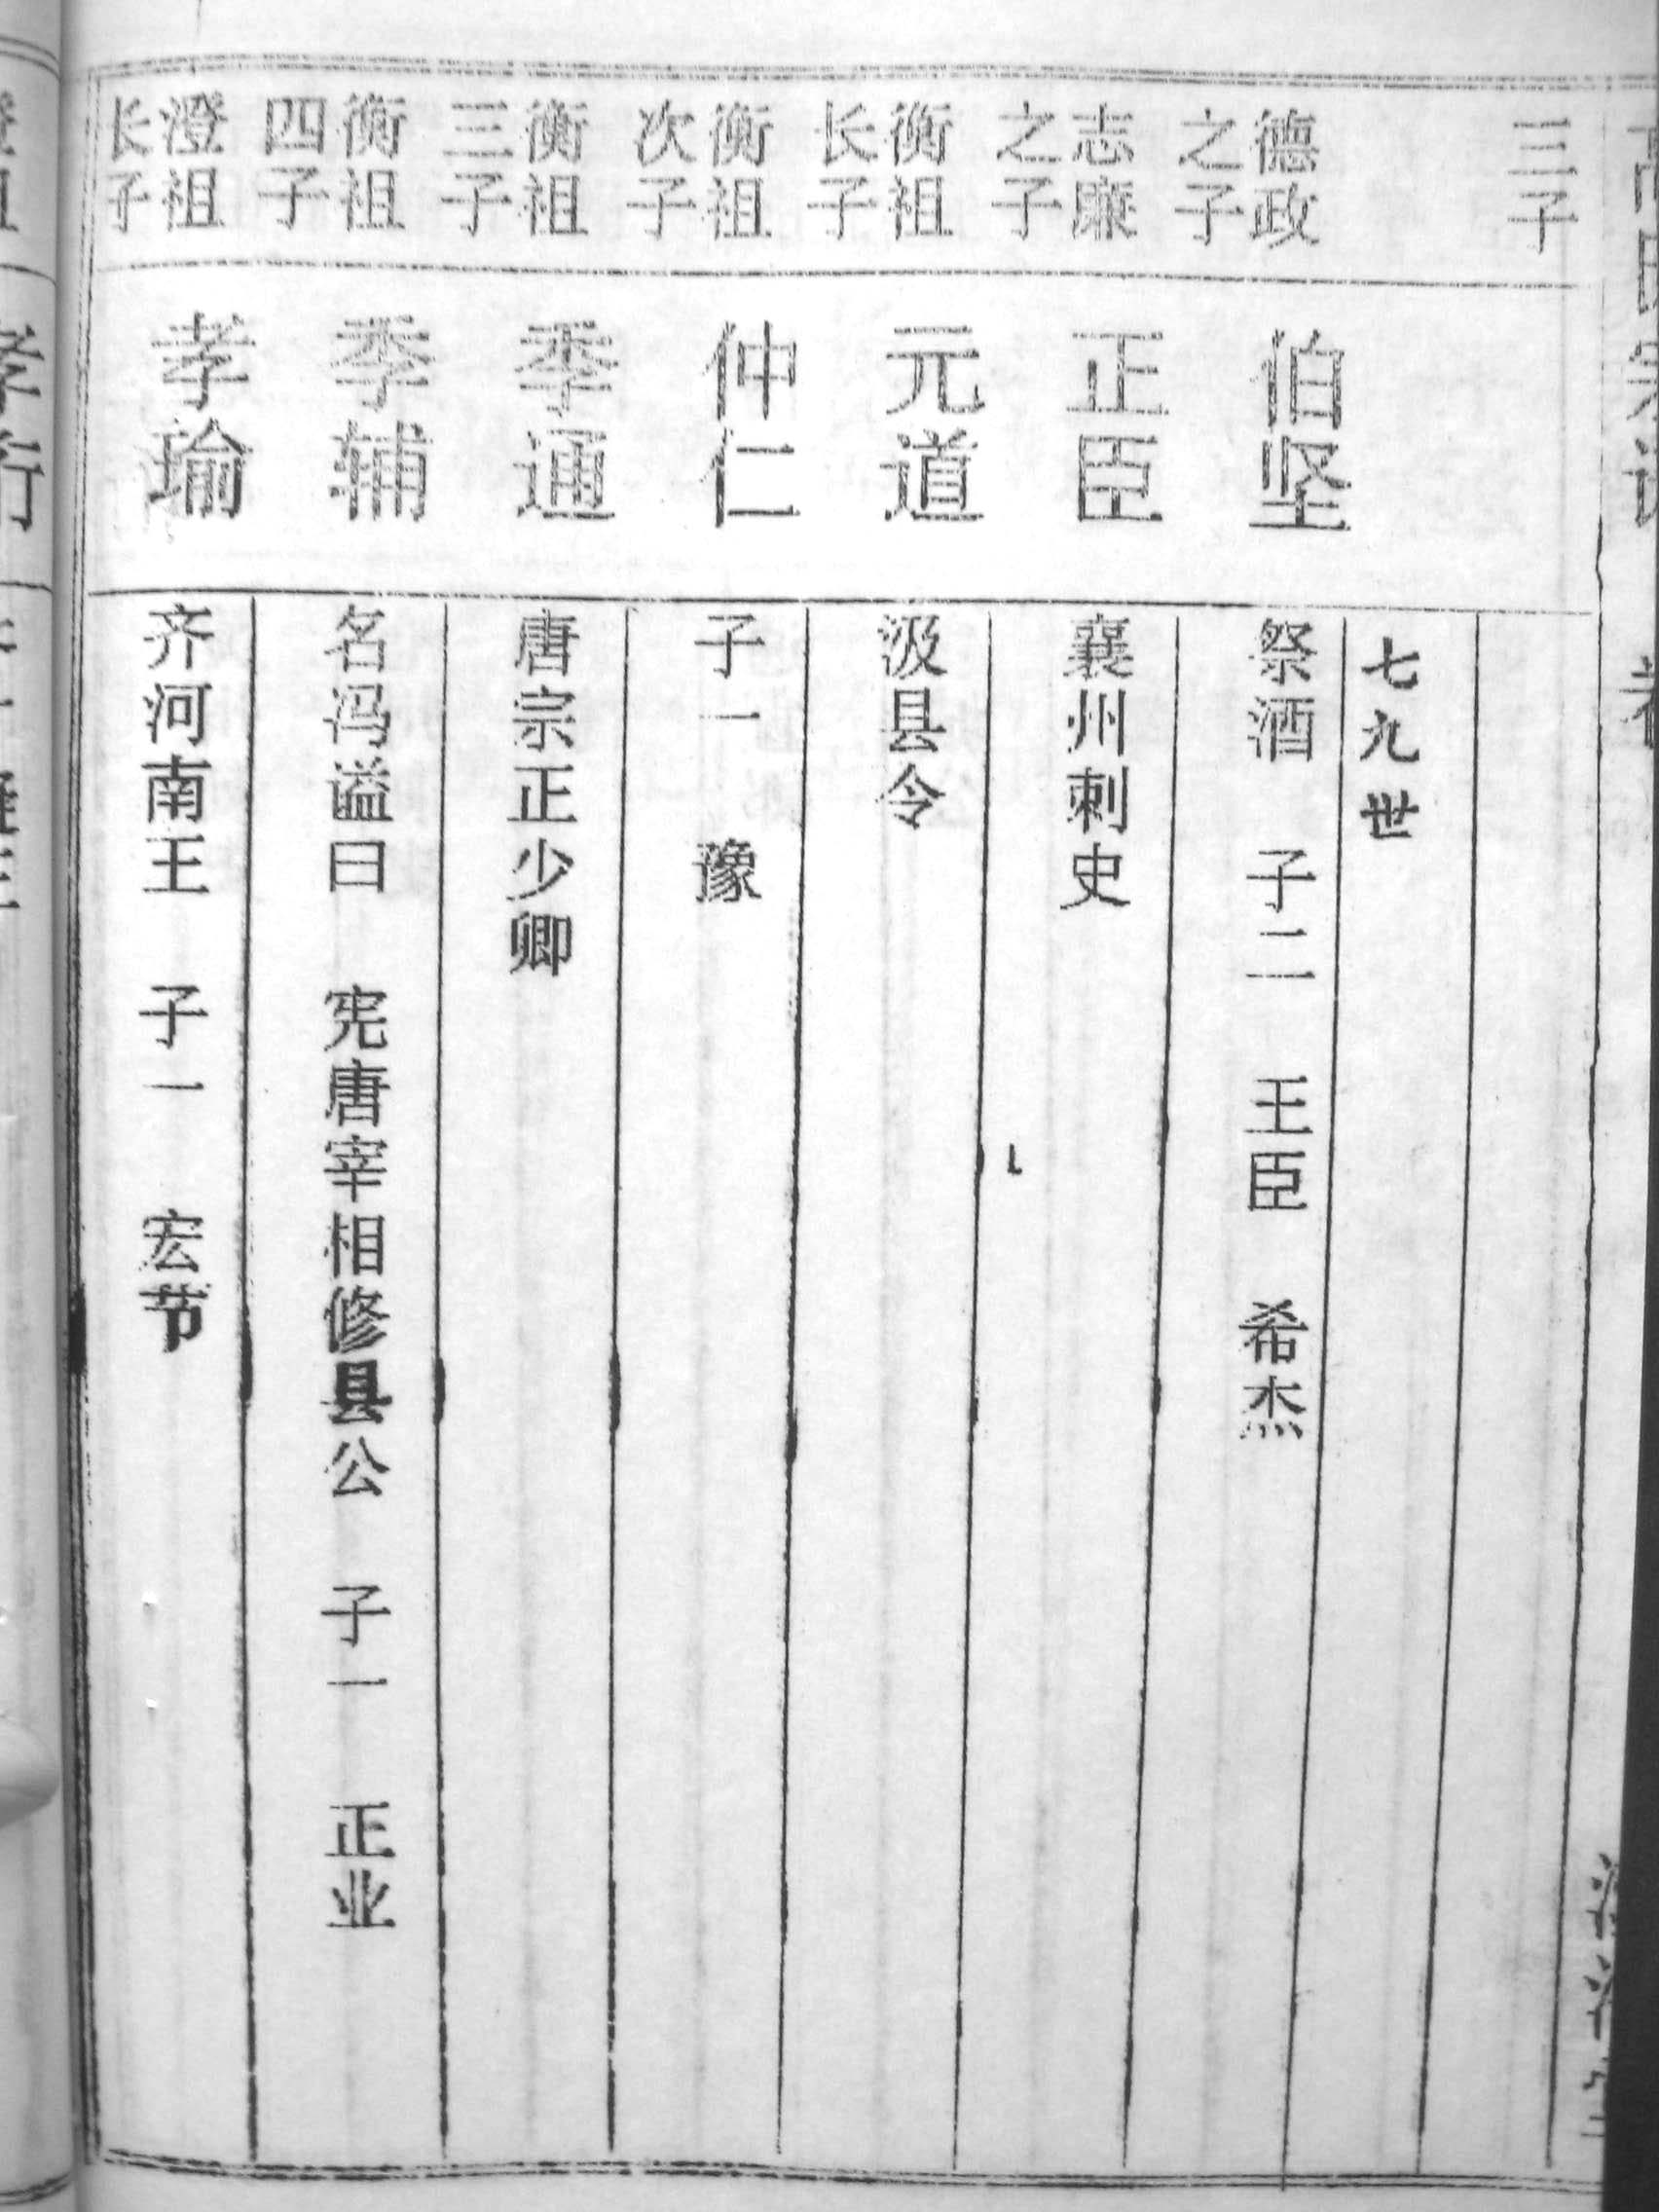 三子
七九世
德政之子
伯坚
祭酒 子二 王臣 希杰
志廉之子
正臣
襄州刺史
衡祖长子
元道
汲县令
衡祖次子
仲仁
子一 豫
衡祖三子
季通
唐宗正少卿
衡祖四子
季辅
名冯谥曰 宪唐宰相修县公 子一 正业
澄祖长子
孝瑜
齐河南王 子一 宏节